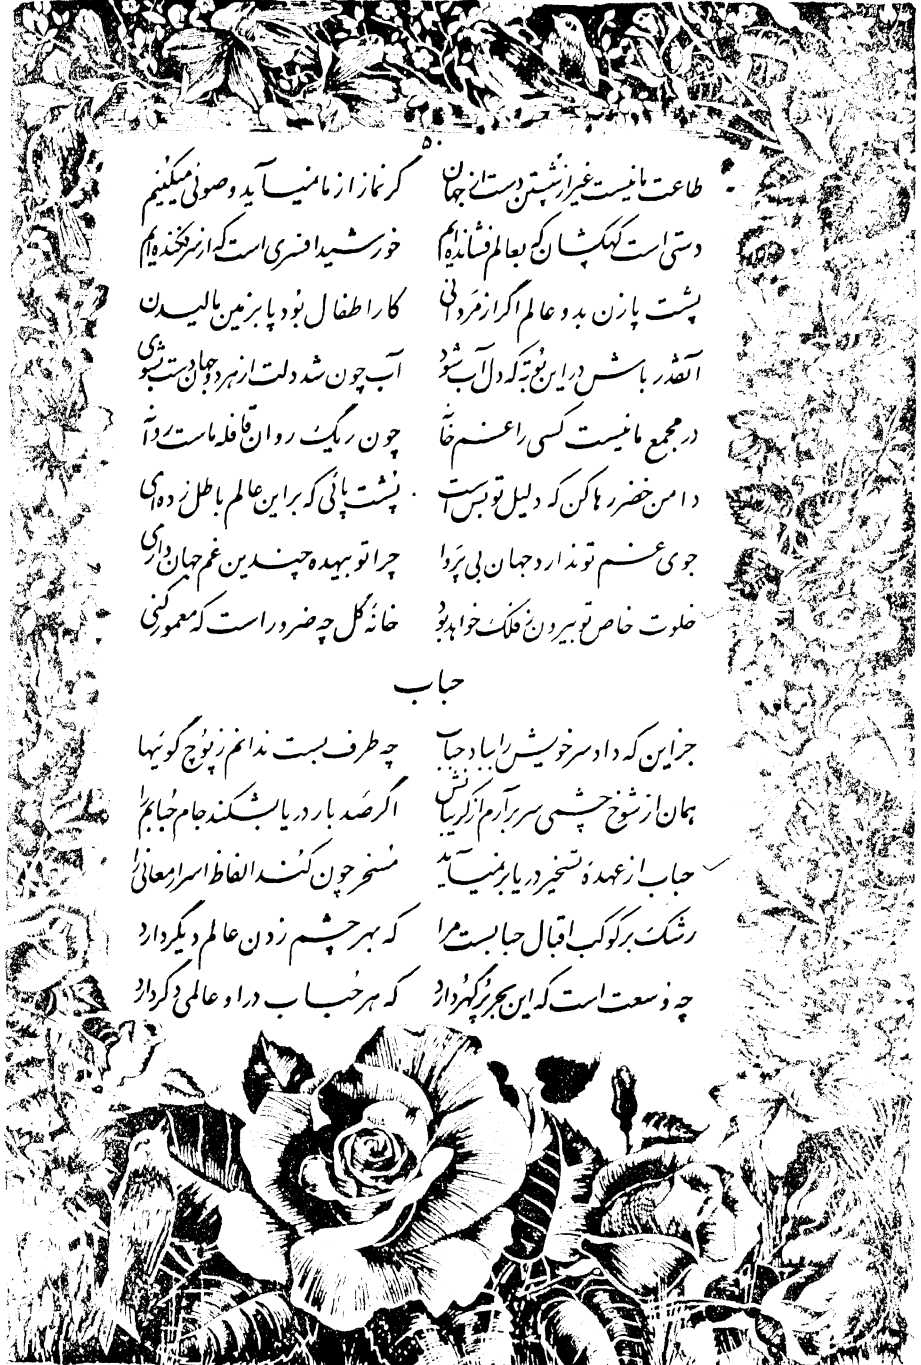 ۵۰
طاعت ما نیست غیر از شستن دست از جهان گر نماز از ما نمیآید وضوئی میکنیم
دستی است کهکشان که بعالم فشانده‌ایم خورشید افسری است که از سر فکنده‌ایم
پشت پا زن بدو عالم اگر از مردانی کار اطفال بود پا بزمین مالیدن
آنقدر باش در این بوته که دل آب شود آب چون شد دلت از هر دو جهان دست بشوی
در مجمع ما نیست کسی را غم خانه چون ریگ روان قافله ماست روانه
دامن خضر رها کن که دلیل تو بس است پشت پائی که بر این عالم باطل زده‌ای
جوی غم تو ندارد جهان بی پروا چرا تو بیهده چندین غم جهان داری
خلوت خاص تو بیرون ز فلک خواهد بود خانه گل چه ضرور است که معمور کنی
حباب
جز این که داد سر خویش را بباد حباب چه طرف بست ندانم ز پوچ گوئیها
همان از شوخ چشمی سر برآرم از گریبانش اگر صد بار دریا بشکند جام حبابم را
حباب از عهدهٔ تسخیر دریا بر نمیآید مسخر چون کنند الفاظ اسرار معانی را
رشک بر کوکب اقبال حبابست مرا که بهر چشم زدن عالم دیگر دارد
چه وسعت است که این بحر پر گهر دارد که هر حباب در او عالمی دگر دارد